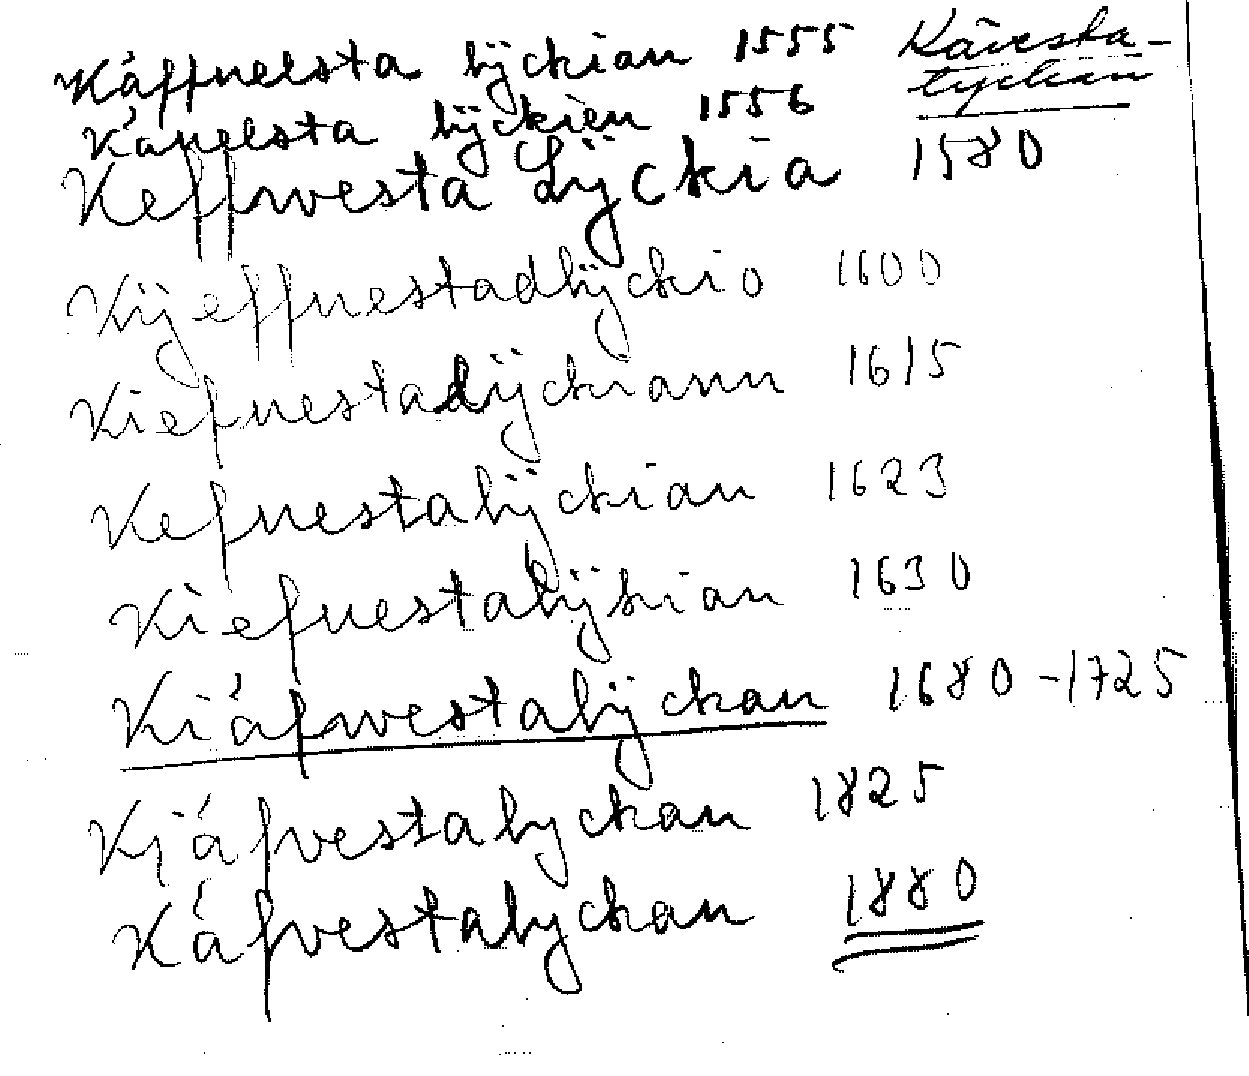 Käffuelsta lÿckian 1555
Kävesta-
lyckan
Käuelsta lÿckien 1556
Keffwesta Lÿckia 1580
Kÿeffuestadlÿckio 1600
Kiefuestadÿckiann 1615
Kefuestalÿckian 1623
Kiefuestalÿkian 1630
Kiäfwestalÿckan 1680-1725
Kjäfvestalyckan 1825
Käfvestalyckan 1880